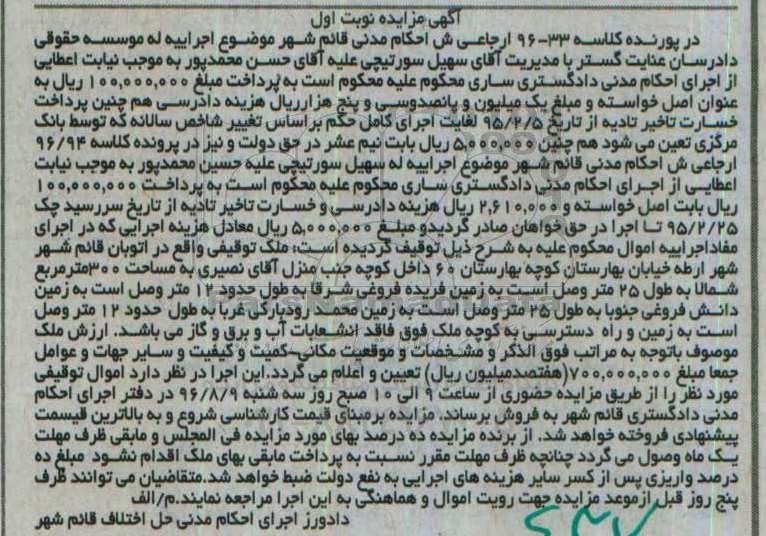 آگهی مزایده نوبت اول
در پورنده کلاسه ۳۳-۹۶ ارجاعی ش احکام مدنی قائم شهر موضوع اجراییه له موسسه حقوقی
دادرسان عنایت گستر با مدیریت آقای سهیل سورتیچی علیه آقای حسن محمدپور به موجب نیابت اعطایی
از اجرای احکام مدنی دادگستری ساری محکوم علیه محکوم است به پرداخت مبلغ ۱۰۰,۰۰۰,۰۰۰ ریال به
عنوان اصل خواسته و مبلغ یک میلیون و پانصدوسی و پنج هزارریال هزینه دادرسی هم چنین پرداخت
خسارت تاخیر تادیه از تاریخ ۹۵/۲/۵ لغایت اجرای کامل حکم براساس تغییر شاخص سالانه که توسط بانک
مرکزی تعین می شود هم چنین ۵,۰۰۰,۰۰۰ ریال بابت نیم عشر در حق دولت و نیز در پرونده کلاسه ۹۶/۹۴
ارجاعی ش احکام مدنی قائم شهر موضوع اجراییه له سهیل سورتیچی علیه حسین محمدپور به موجب نیابت
اعطایی از اجرای احکام مدنی دادگستری ساری محکوم علیه محکوم است به پرداخت ۱۰۰,۰۰۰,۰۰۰
ریال بابت اصل خواسته و ۲,۶۱۰,۰۰۰ ریال هزینه دادرسی و خسارت تاخیر تادیه از تاریخ سررسید چک
۹۵/۲/۲۵ تا اجرا در حق خواهان صادر گردیدو مبلغ ۵,۰۰۰,۰۰۰ ریال معادل هزینه اجرایی که در اجرای
مفاداجراییه اموال محکوم علیه به شرح ذیل توقیف گردیده است: ملک توقیفی واقع در اتوبان قائم شهر
شهر ارطه خیابان بهارستان کوچه بهارستان ۶۰ داخل کوچه جنب منزل آقای نصیری به مساحت ۳۰۰مترمربع
شمالا به طول ۲۵ متر وصل است به زمین فریده فروغی شرقا به طول حدود ۱۲ متر وصل است به زمین
دانش فروغی جنوبا به طول ۲۵ متر وصل است به زمین محمد رودبارکی غربا به طول حدود ۱۲ متر وصل
است به زمین و راه دسترسی به کوچه ملک فوق فاقد انشعابات آب و برق و گاز می باشد. ارزش ملک
موصوف باتوجه به مراتب فوق الذکر و مشخصات و موقعیت مکانی-کمیت و کیفیت و سایر جهات و عوامل
جمعا مبلغ ۷۰۰,۰۰۰,۰۰۰(هفتصدمیلیون ریال) تعیین و اعلام می گردد.این اجرا در نظر دارد اموال توقیفی
مورد نظر را از طریق مزایده حضوری از ساعت ۹ الی ۱۰ صبح روز سه شنبه ۹۶/۸/۹ در دفتر اجرای احکام
مدنی دادگستری قائم شهر به فروش برساند. مزایده برمبنای قیمت کارشناسی شروع و به بالاترین قیسمت
پیشنهادی فروخته خواهد شد. از برنده مزایده ده درصد بهای مورد مزایده فی المجلس و مابقی ظرف مهلت
یک ماه وصول می گردد چنانچه ظرف مهلت مقرر نسبت به پرداخت مابقی بهای ملک اقدام نشود مبلغ ده
درصد واریزی پس از کسر سایر هزینه های اجرایی به نفع دولت ضبط خواهد شد.متقاضیان می توانند ظرف
پنج روز قبل ازموعد مزایده جهت رویت اموال و هماهنگی به این اجرا مراجعه نمایند.م/الف
دادورز اجرای احکام مدنی حل اختلاف قائم شهر